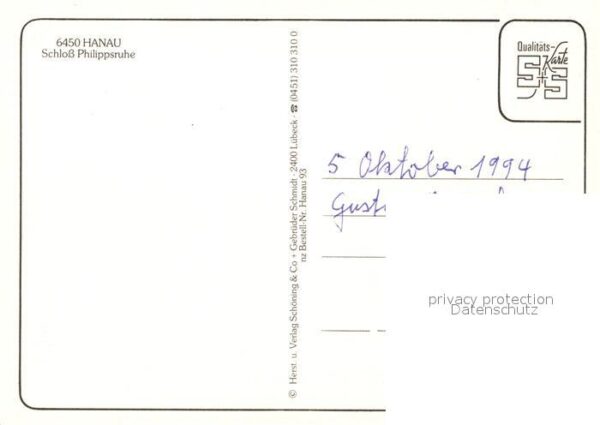 6450 HANAU
Schloß Philippsruhe
© Herst. u. Verlag Schöning & Co + Gebrüder Schmidt · 2400 Lübeck · ☎ (0451) 310 310 0
nz Bestell-Nr. Hanau 93
Qualitäts-
Karte
S+S
5 Oktober 1994
privacy protection
Datenschutz